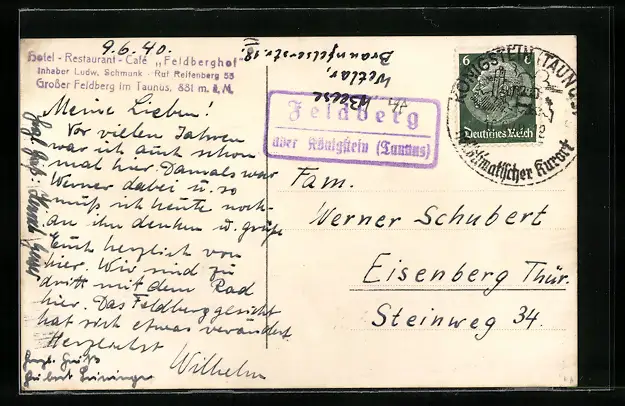 9.6.40.
Hotel - Restaurant - Café „Feldberghof"
Inhaber Ludw. Schmunk - Ruf Reifenberg 55
Großer Feldberg im Taunus, 881 m. ü. M.
Meine Lieben!
Vor vielen Jahren
war ich auch schon
mal hier. Damals war
Werner dabei u. so
muß ich heute noch
an ihn denken u. grüße
Euch herzlich von
hier. Wir sind zu
dritt mit dem Rad
hier. Das Feldberggesicht
hat sich etwas verändert.
Herzlichst
Wilhelm
Herzl. Gruß
Wetzlar,
Braunfelserstr. 18.
Feldberg
über Königstein (Taunus)
6 6
Deutsches Reich
KÖNIGSTEIN (TAUNUS)
Heilklimatischer Kurort
Fam.
Werner Schubert
Eisenberg Thür.
Steinweg 34.